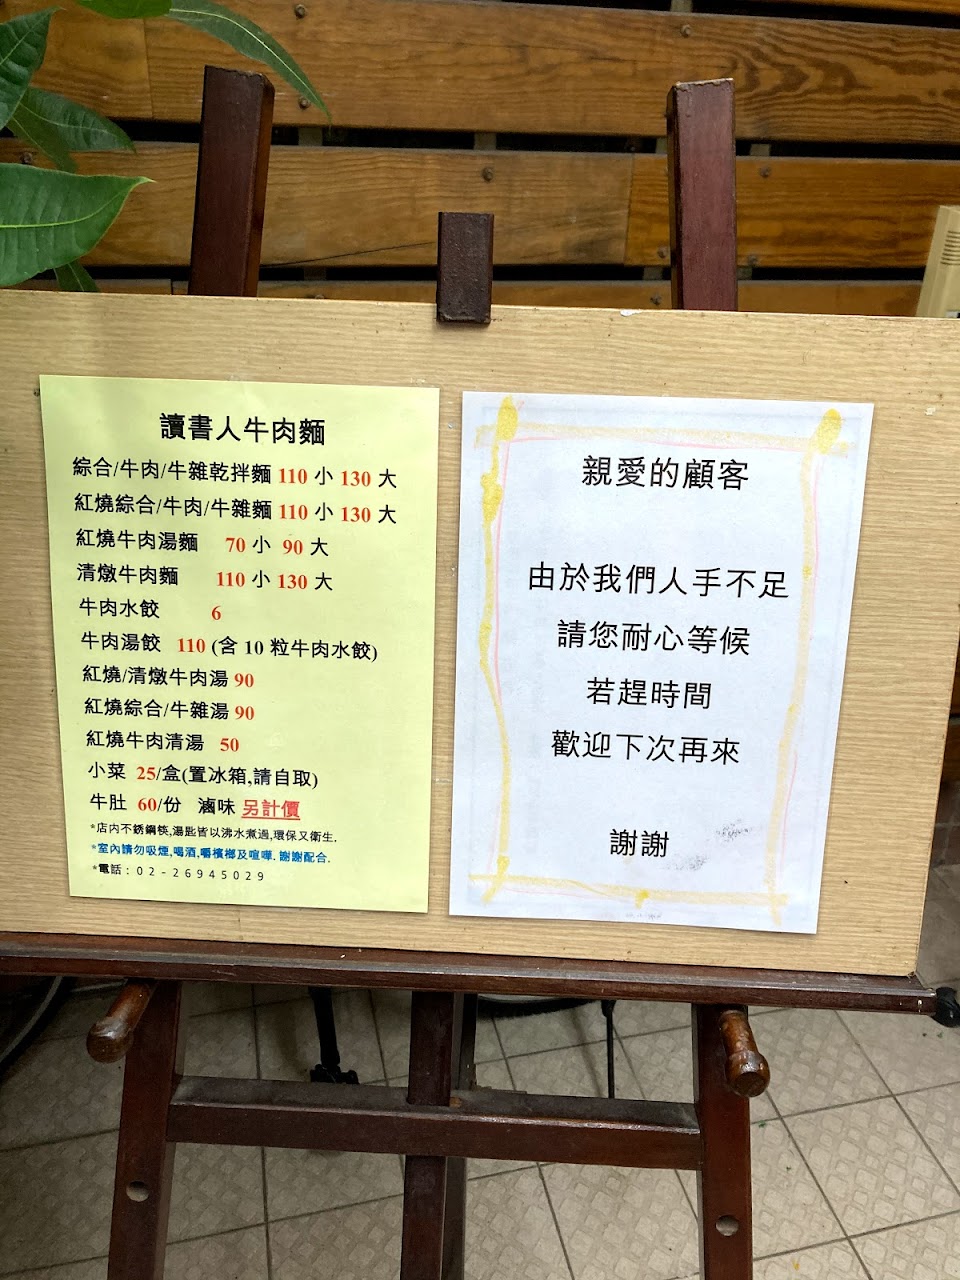 讀書人牛肉麵
綜合/牛肉/牛雜乾拌麵 110 小 130 大
紅燒綜合/牛肉/牛雜麵 110 小 130 大
紅燒牛肉湯麵 70 小 90 大
清燉牛肉麵 110 小 130 大
牛肉水餃 6
牛肉湯餃 110 (含 10 粒牛肉水餃)
紅燒/清燉牛肉湯 90
紅燒綜合/牛雜湯 90
紅燒牛肉清湯 50
小菜 25/盒(置冰箱,請自取)
牛肚 60/份 滷味 另計價
*店內不銹鋼筷,湯匙皆以沸水煮過,環保又衛生.
*室內請勿吸煙,喝酒,嚼檳榔及喧嘩. 謝謝配合.
*電話：02-26945029
親愛的顧客
由於我們人手不足
請您耐心等候
若趕時間
歡迎下次再來
謝謝